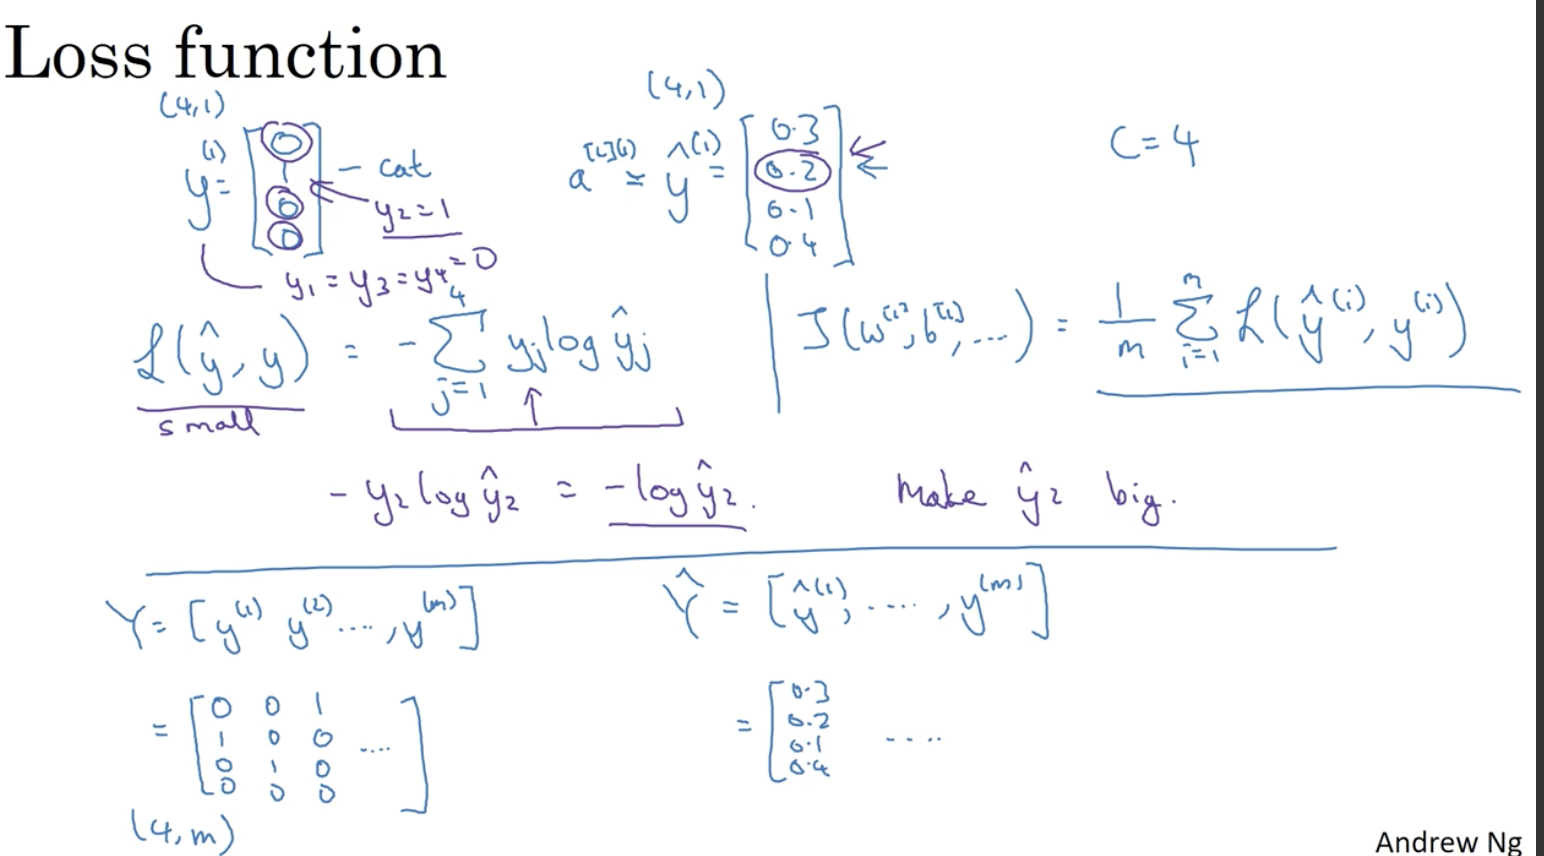 Loss function
(4,1)
y⁽¹⁾ = [0 1 0 0] - cat
y₂ = 1
y₁ = y₃ = y₄ = 0
(4,1)
a^{[L](i)} ≃ ŷ⁽ⁱ⁾ = [0.3 0.2 0.1 0.4]
C = 4
ℒ(ŷ, y) = - ∑_{j=1}^{4} yⱼ log ŷⱼ
small
J(w^{[1]}, b^{[1]}, ...) = 1/m ∑_{i=1}^{m} ℒ(ŷ⁽ⁱ⁾, y⁽ⁱ⁾)
- y₂ log ŷ₂ = - log ŷ₂. Make ŷ₂ big.
Y = [y⁽¹⁾ y⁽²⁾ ...., y⁽ᵐ⁾]
Ŷ = [ŷ⁽¹⁾, ...., y⁽ᵐ⁾]
= [0 0 1
1 0 0 ....
0 1 0
0 0 0]
(4,m)
= [0.3
0.2
0.1 ....
0.4
Andrew Ng